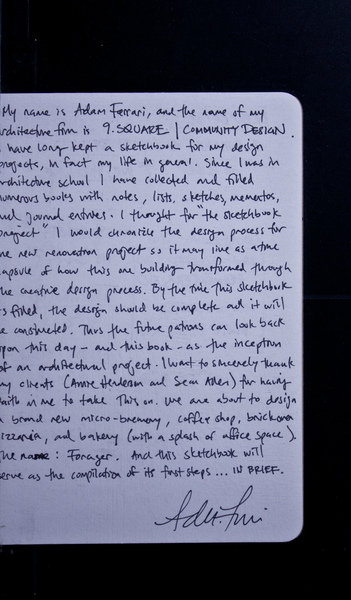 My name is Adam Ferrari, and the name of my
architecture firm is 9.SQUARE | COMMUNITY DESIGN.
I have long kept a sketchbook for my design
projects, in fact my life in general. Since I was in
architecture school I have collected and filled
numerous books with notes, lists, sketches, mementos,
and journal entries. I thought for "the sketchbook
project" I would chronicle the design process for
one new renovation project so it may live as a time
capsule of how this one building transformed through
the creative design process. By the time this sketchbook
is filled, the design should be complete and it will
be constructed. Thus the future patrons can look back
upon this day - and this book - as the inception
of an architectural project. I want to sincerely thank
my clients (Annie Henderson and Sean Allen) for having
faith in me to take this on. We are about to design
a brand new micro-brewery, coffee shop, brick oven
pizzeria, and bakery (with a splash of office space).
The name: Forager. And this sketchbook will
serve as the compilation of its first steps ... IN BRIEF.